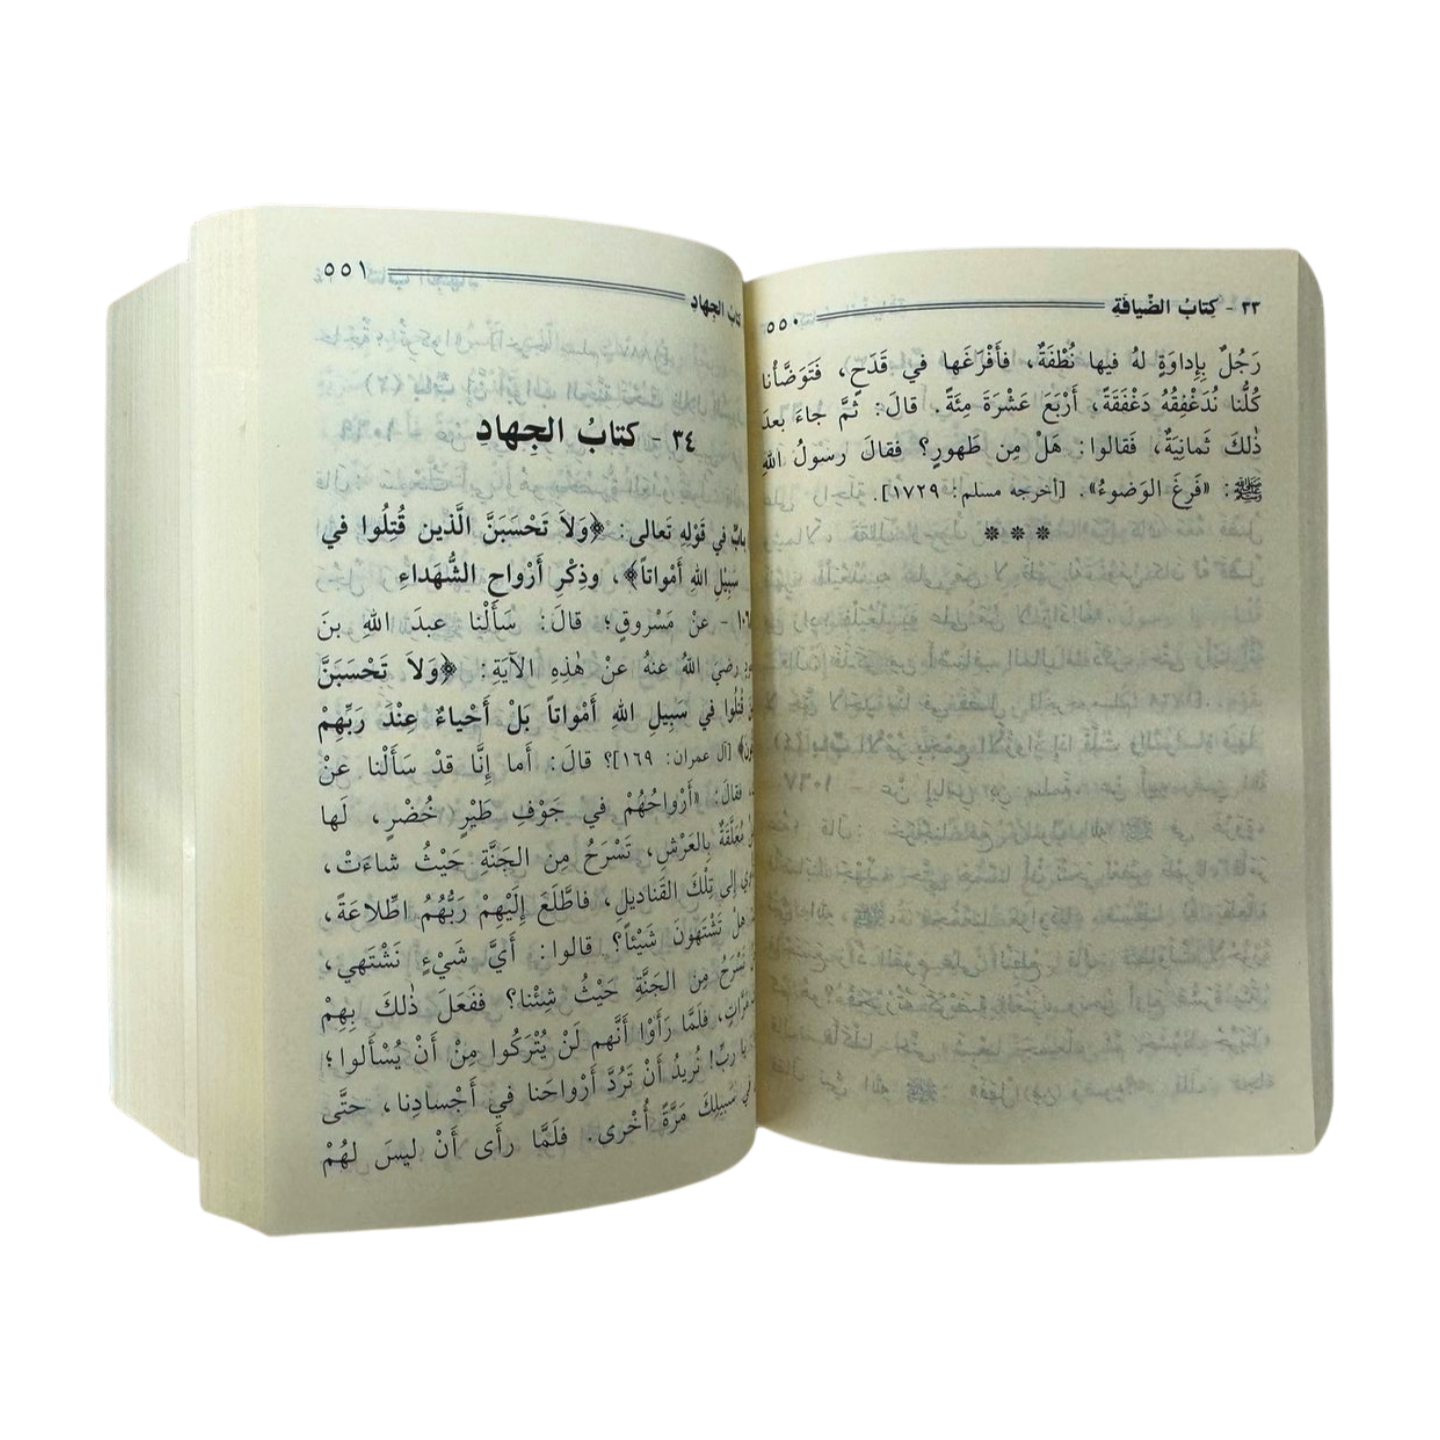 ٣٣ - كِتابُ الضِّيافَةِ
٥٥٠
رَجُلٌ بِإِداوَةٍ لهُ فيها نُطْفَةٌ، فأَفْرَغَها في قَدَحٍ، فَتَوَضَّأْنا
كُلُّنا نُدَغْفِقُهُ دَغْفَقَةً، أَرْبَعَ عَشْرَةَ مِئَةً. قالَ: ثُمَّ جاءَ بعدَ
ذٰلكَ ثَمانِيَةٌ، فَقالوا: هَلْ مِن طَهورٍ؟ فقالَ رسولُ اللهِ
ﷺ: «فَرِغَ الوَضوءُ». [أخرجه مسلم: ١٧٢٩].
***
كتابُ الجِهادِ
٥٥١
٣٤ - كتابُ الجِهادِ
بابٌ في قَوْلِهِ تَعالى: ﴿وَلاَ تَحْسَبَنَّ الَّذين قُتِلُوا في
سَبِيْلِ اللهِ أَمْواتاً﴾، وذِكْرِ أَرْواحِ الشُّهَداءِ
- عنْ مَسْروقٍ؛ قالَ: سَأَلْنا عبدَ اللهِ بنَ
رضيَ اللهُ عنهُ عنْ هٰذِهِ الآيَةِ: ﴿وَلاَ تَحْسَبَنَّ
قُتِلُوا في سَبِيلِ اللهِ أَمْواتاً بَلْ أَحْياءٌ عِنْدَ رَبِّهِمْ
[آل عمران: ١٦٩]؟ قالَ: أَما إِنَّا قدْ سَأَلْنا عنْ
فقالَ: «أَرْواحُهُمْ في جَوْفِ طَيْرٍ خُضْرٍ، لَها
مُعَلَّقَةٌ بِالعَرْشِ، تَسْرَحُ مِنَ الجَنَّةِ حَيْثُ شاءَتْ،
إِلى تِلْكَ القَناديلِ، فاطَّلَعَ إِلَيْهِمْ رَبُّهُمُ اطِّلاعَةً،
هلْ تَشْتَهونَ شَيْئاً؟ قالوا: أَيَّ شَيْءٍ نَشْتَهي،
نَسْرَحُ مِنَ الجَنَّةِ حَيْثُ شِئْنا؟ ففَعَلَ ذٰلكَ بِهِمْ
مَرَّاتٍ، فلَمَّا رَأَوْا أَنَّهم لَنْ يُتْرَكُوا مِنْ أَنْ يُسْأَلوا؛
يا ربِّ! نُريدُ أَنْ تَرُدَّ أَرْواحَنا في أَجْسادِنا، حتَّى
في سَبيلِكَ مَرَّةً أُخْرى. فلَمَّا رأَى أَنْ ليسَ لهُمْ